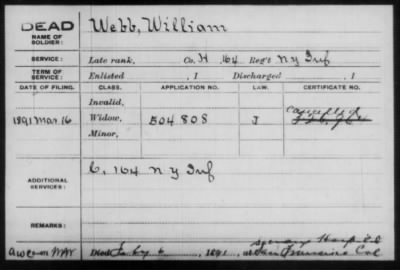 DEAD
NAME OF SOLDIER:
Webb, William
SERVICE:
Late rank, Co. H 64 Reg't N Y Inf
TERM OF SERVICE:
Enlisted , 1 Discharged , 1
DATE OF FILING. CLASS. APPLICATION NO. LAW. CERTIFICATE NO.
Invalid,
1891 Mar 16 Widow, 504 808 J Cancelled
Minor,
ADDITIONAL SERVICES:
C, 164 N Y Inf
REMARKS:
Died July 6, 1891, at San Francisco Cal